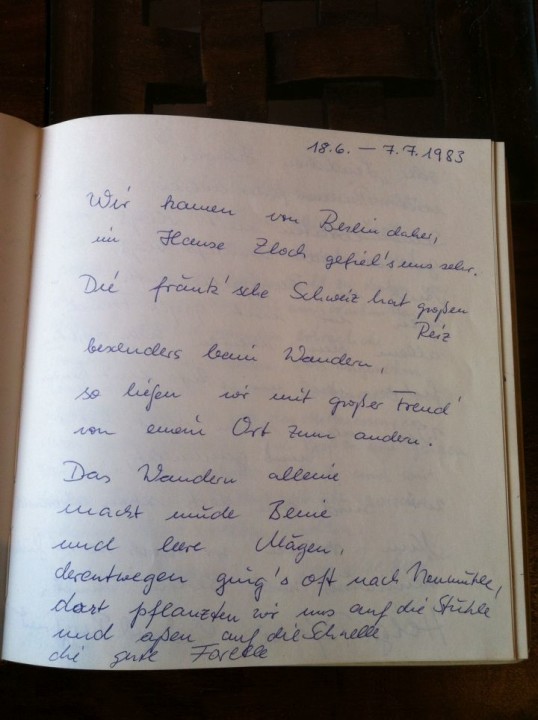 18.6. – 7.7.1983
Wir kamen von Berlin daher,
im Hause Zloch gefiel's uns sehr.
Die fränk'sche Schweiz hat großen
Reiz
besonders beim Wandern,
so liefen wir mit großer Freud'
von einem Ort zum andern.
Das Wandern alleine
macht müde Beine
und leere Mägen,
derentwegen ging's oft nach Neumühle,
dort pflanzten wir uns auf die Stühle
und aßen auf die Schnelle
die gute Forelle